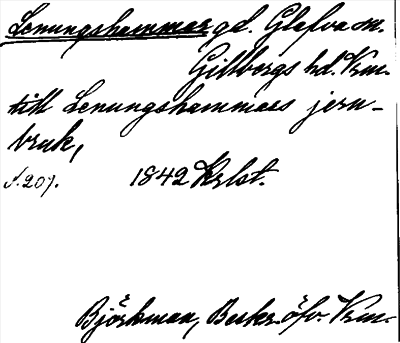 Lenungshammar gd. Glafva sn.
Gillbergs hd. Vrm.
till Lenungshammars jern-
bruk,
s. 207. 1842 Krlst.
Björkman, Beskr. öfv. Vrm.